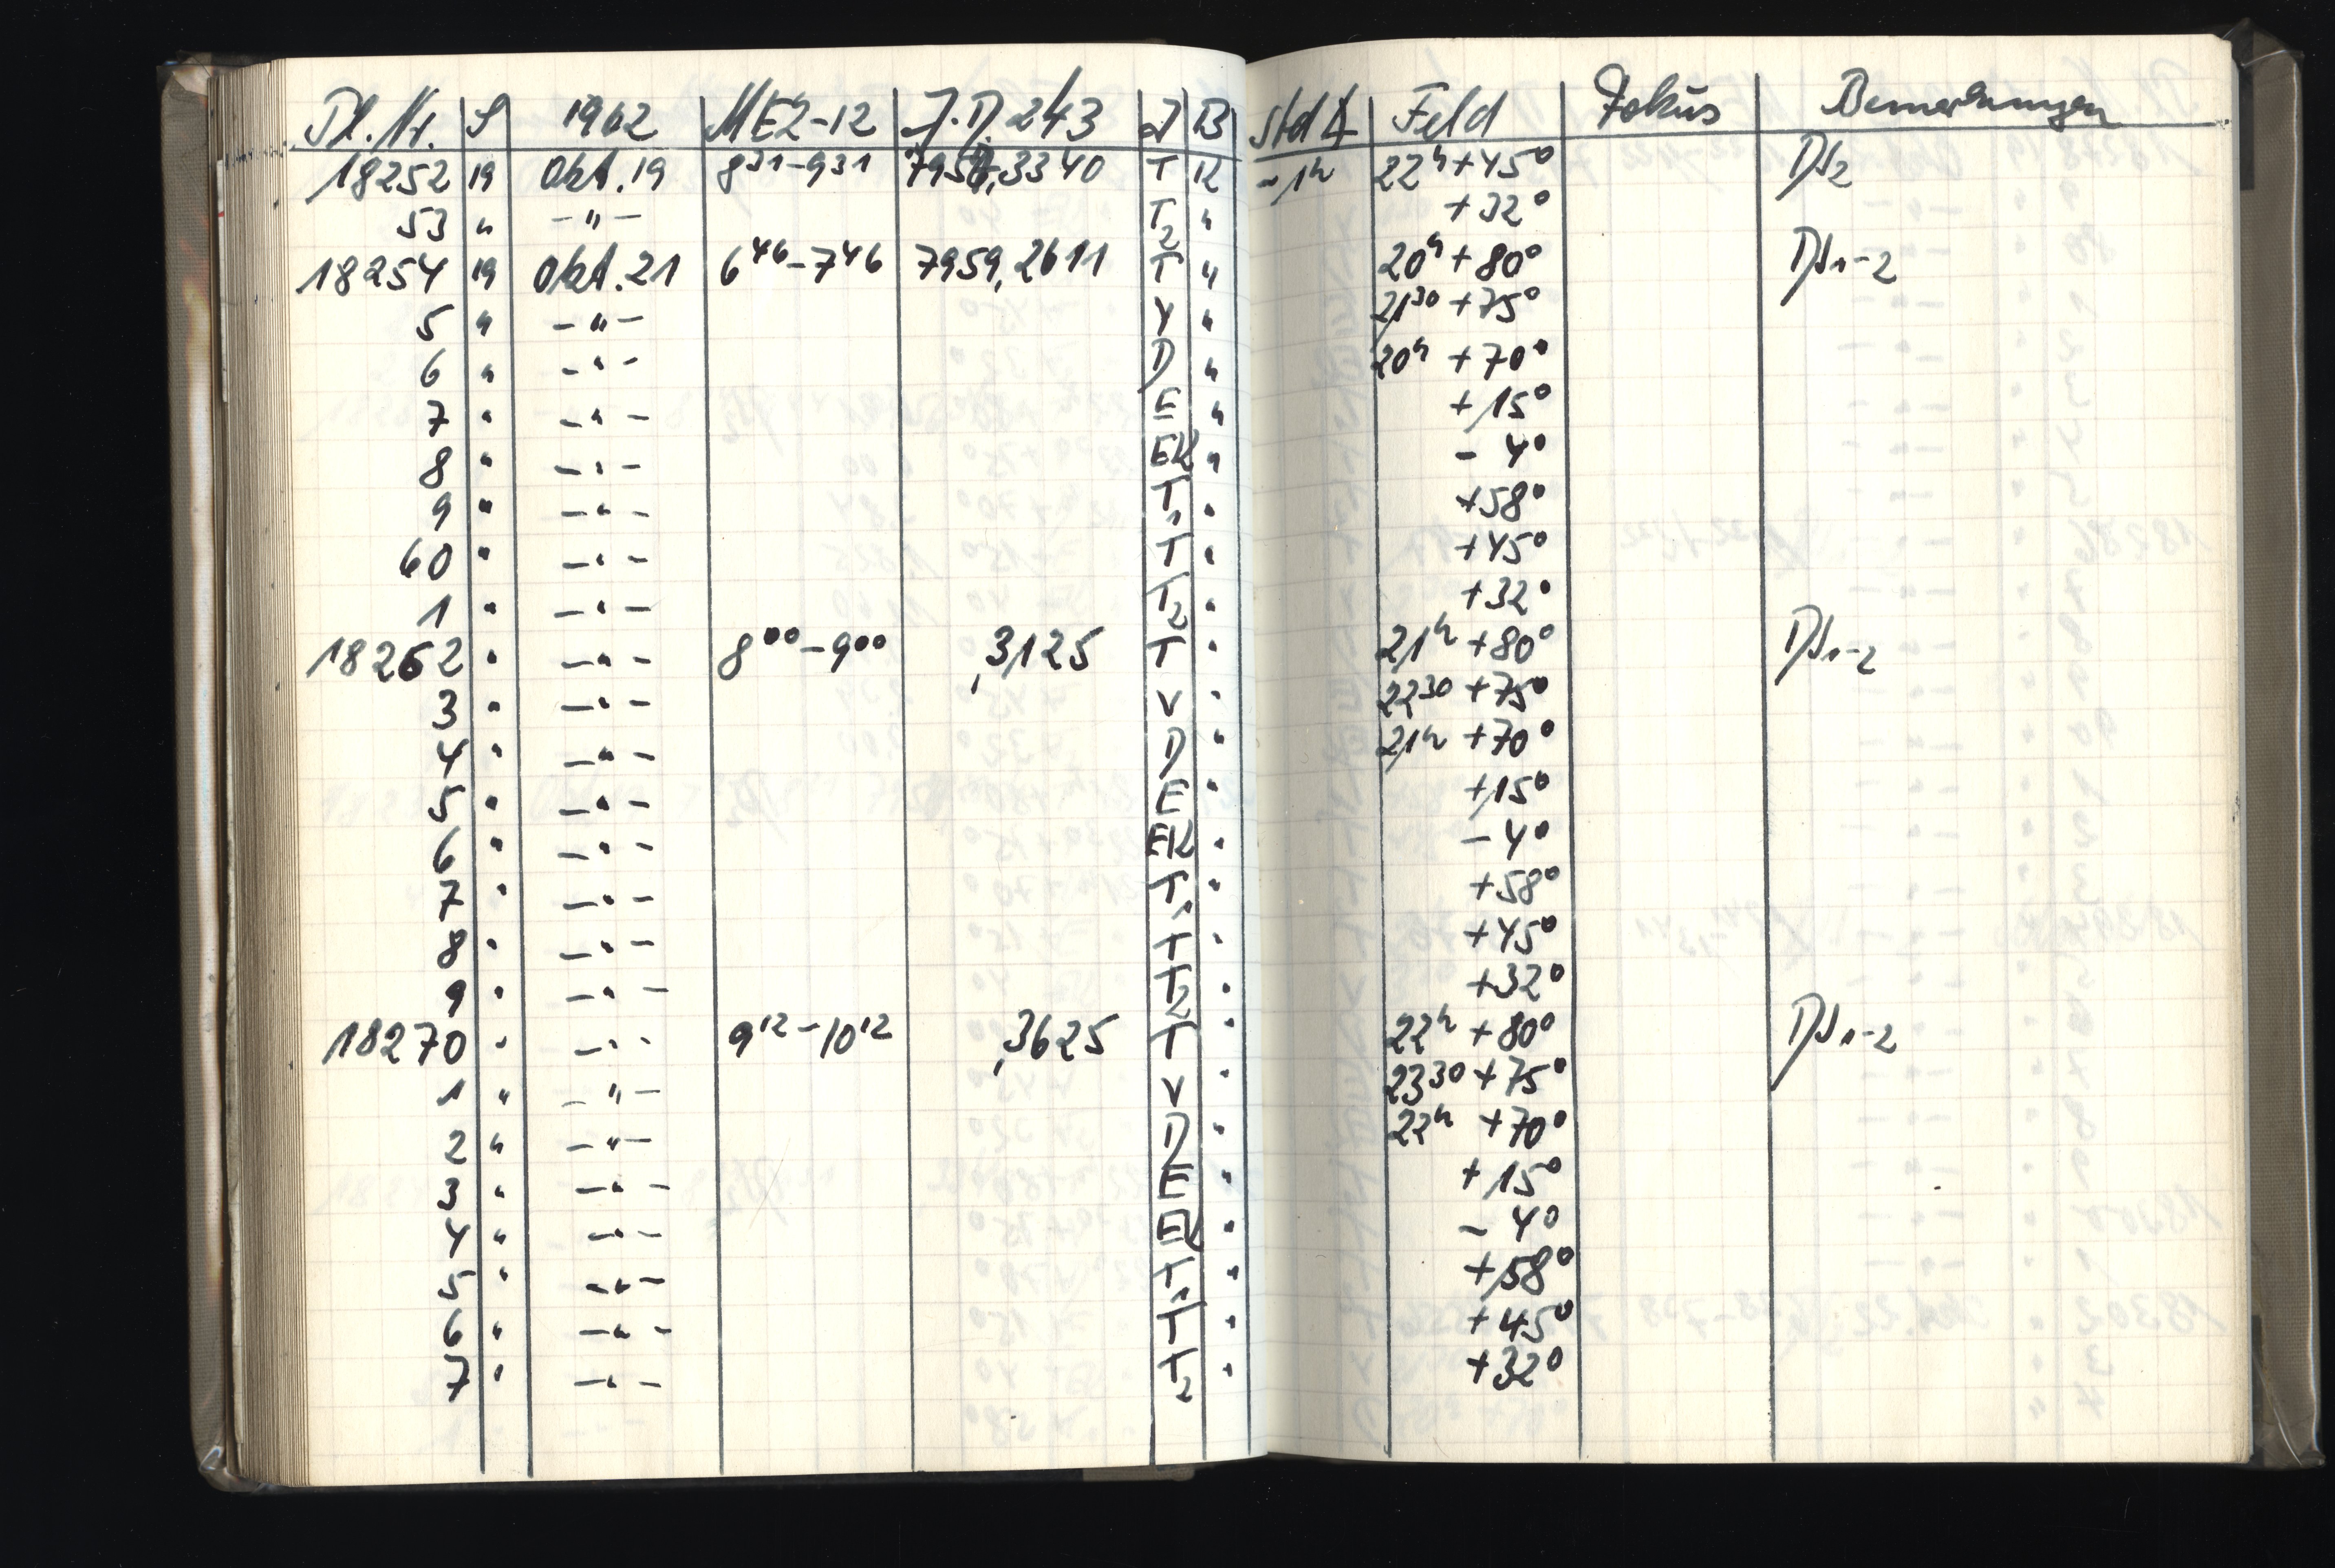 Pl. Nr. S 1962 MEZ-12 J.D. 243 J B Std A Feld Fokus Bemerkungen
18252 19 Okt. 19 8³¹-9³¹ 7957,3340 T 12 -1ʰ 22ʰ+45° DS2
53 " -"- T2 " +32°
18254 19 Okt. 21 6⁴⁶-7⁴⁶ 7959,2611 T " 20ʰ+80° DS1-2
5 " -"- V " 21³⁰+75°
6 " -"- D " 20ʰ+70°
7 " -"- E " +15°
8 " -"- EK " -4°
9 " -"- T1 " +58°
60 " -"- T " +45°
1 " -"- T2 " +32°
18262 " -"- 8⁰⁰-9⁰⁰ ,3125 T " 21ʰ+80° DS1-2
3 " -"- V " 22³⁰+75°
4 " -"- D " 21ʰ+70°
5 " -"- E " +15°
6 " -"- EK " -4°
7 " -"- T1 " +58°
8 " -"- T " +45°
9 " -"- T2 " +32°
18270 " -"- 9¹²-10¹² ,3625 T " 22ʰ+80° DS1-2
1 " -"- V " 23³⁰+75°
2 " -"- D " 22ʰ+70°
3 " -"- E " +15°
4 " -"- EK " -4°
5 " -"- T1 " +58°
6 " -"- T " +45°
7 " -"- T2 " +32°